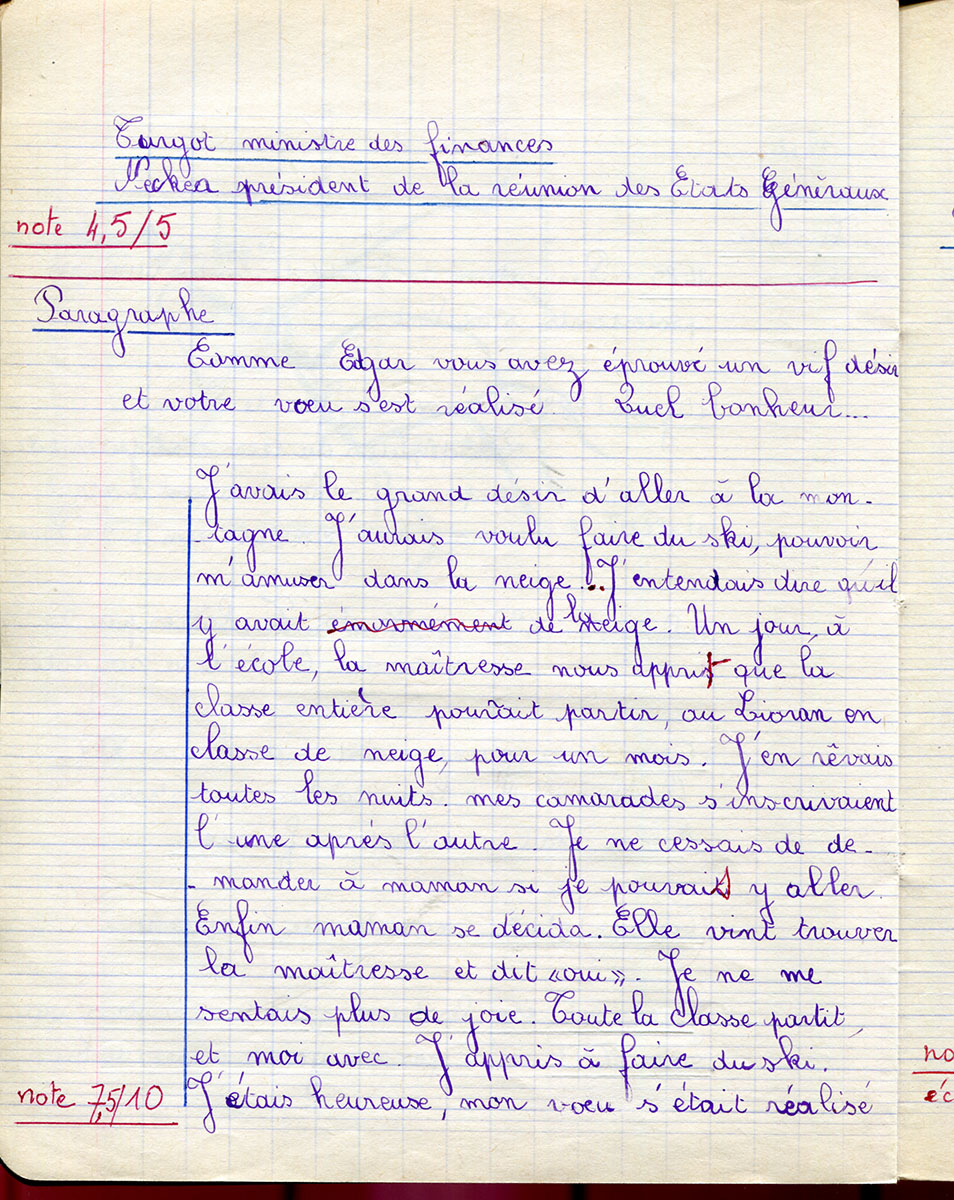 Turgot ministre des finances
Necker président de la réunion des Etats Généraux
note 4,5/5
Paragraphe
Comme Edgar vous avez éprouvé un vif désir
et votre voeu s'est réalisé. Quel bonheur...
J'avais le grand désir d'aller à la mon-
tagne. J'aurais voulu faire du ski, pouvoir
m'amuser dans la neige!.. J'entendais dire qu'il
y avait énormément de la neige. Un jour, à
l'école, la maîtresse nous apprit que la
classe entière pourrait partir, au Lioran en
classe de neige, pour un mois. J'en rêvais
toutes les nuits. mes camarades s'inscrivaient
l'une après l'autre. Je ne cessais de de-
mander à maman si je pouvais y aller.
Enfin maman se décida. Elle vint trouver
la maîtresse et dit «oui». Je ne me
sentais plus de joie. Toute la classe partit,
et moi avec. J'appris à faire du ski.
note 7,5/10
J'étais heureuse, mon voeu s'était réalisé
no
éc